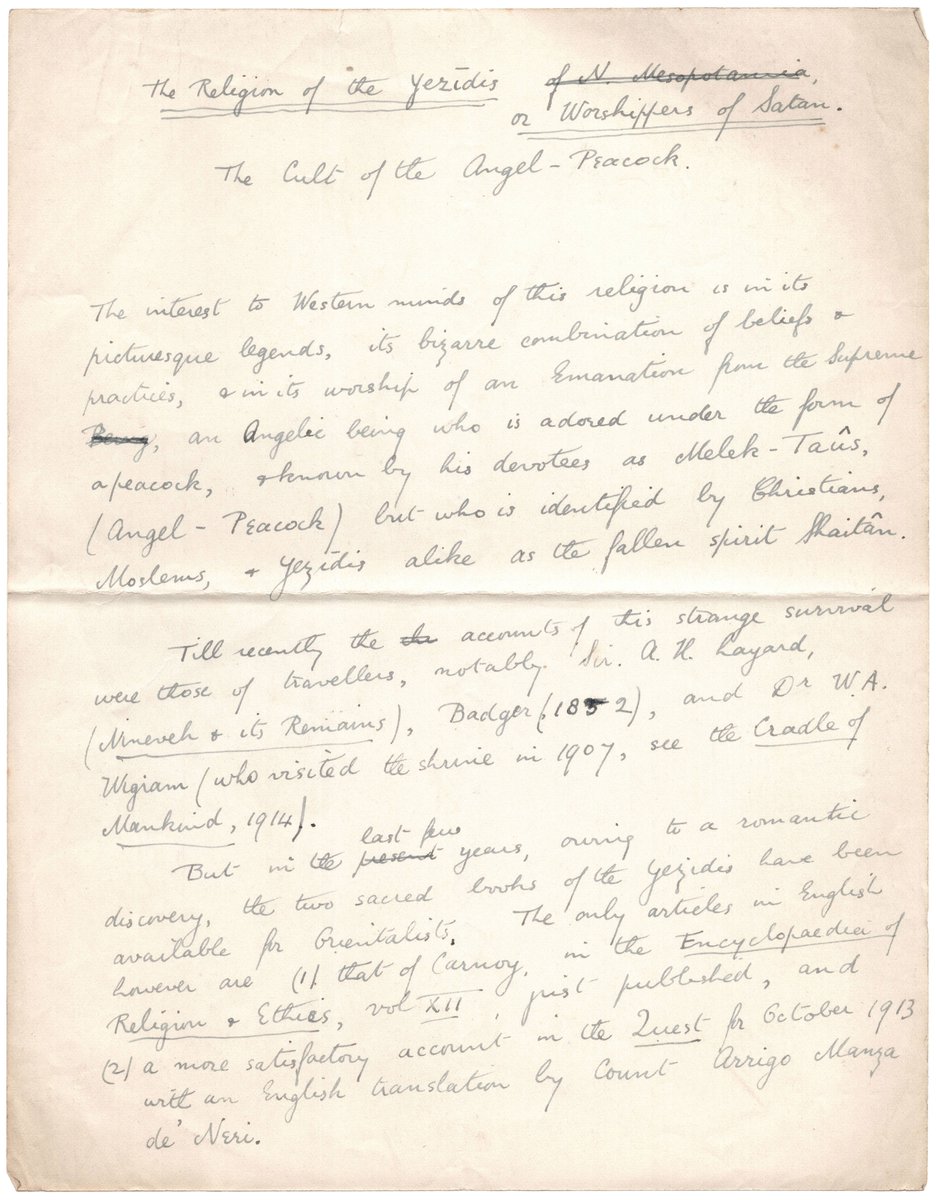 The Religion of the Yezīdis of N. Mesopotamia,
or Worshippers of Satan.
The Cult of the Angel-Peacock.
The interest to Western minds of this religion is in its
picturesque legends, its bizarre combination of beliefs &
practices, & in its worship of an Emanation from the Supreme
Being, an Angelic being who is adored under the form of
a peacock, & known by his devotees as Melek-Taûs,
(Angel-Peacock) but who is identified by Christians,
Moslems, & Yezīdis alike as the fallen spirit Shaitân.
Till recently the the accounts of this strange survival
were those of travellers, notably Sir. A. H. Layard,
(Nineveh & its Remains), Badger (1852), and Dr W.A.
Wigram (who visited the shrine in 1907, see the Cradle of
Mankind, 1914).
last few
But in the present years, owing to a romantic
discovery, the two sacred books of the Yezidis have been
available for Orientalists. The only articles in English
however are (1) that of Carnoy, in the Encyclopaedia of
Religion & Ethics, vol XII, just published, and
(2) a more satisfactory account in the Quest for October 1913
with an English translation by Count Arrigo Manza
de' Neri.